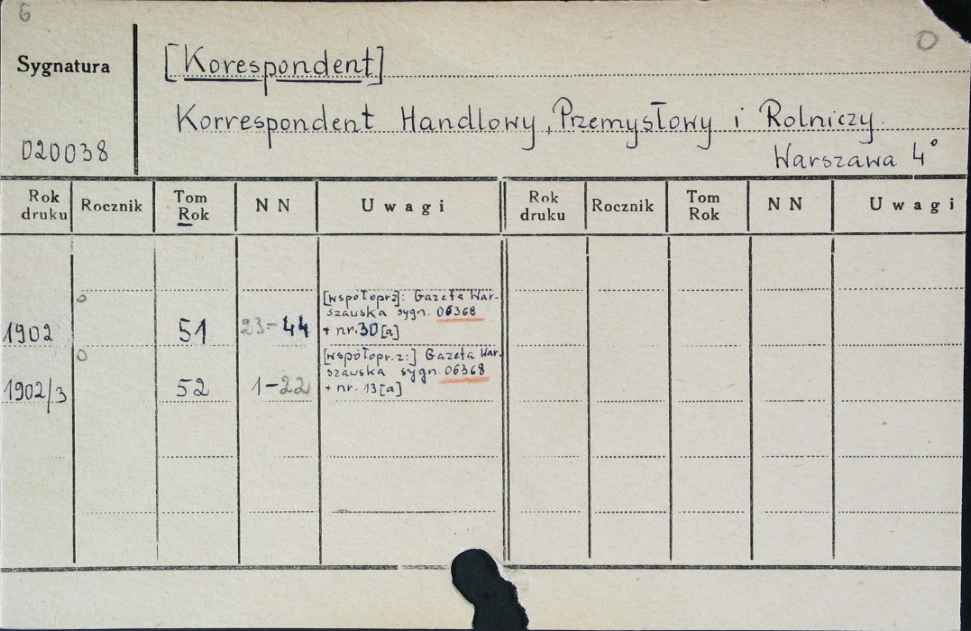 6
0
Sygnatura
[Korespondent]
Korrespondent Handlowy, Przemysłowy i Rolniczy.
020038
Warszawa 4°
Rok druku Rocznik Tom Rok NN Uwagi Rok druku Rocznik Tom Rok NN Uwagi
1902 0 51 23-44 [współopr z]: Gazeta War-
szawska sygn. 06368
+ nr. 30[a]
1902/3 0 52 1-22 [współopr. z:] Gazeta War-
szawska sygn. 06368
+ nr. 13[a]